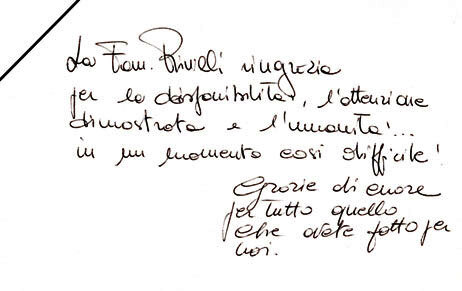 La Fam. Rivielli ringrazia
per la disponibilità, l'attenzione
dimostrata e l'umanità...
in un momento così difficile!
Grazie di cuore
per tutto quello
che avete fatto per
noi.